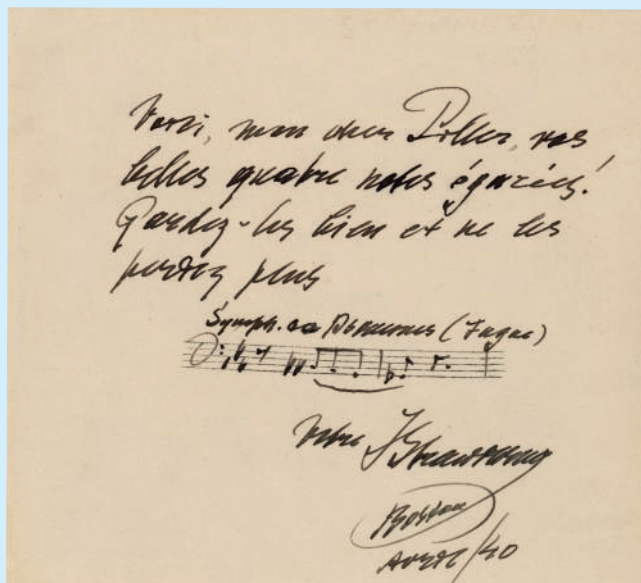 Voici, mon cher Piller, vos
belles quatre notes égarées!
Gardez-les bien et ne les
perdez plus
Symph. de Psaumes (Fugue)
Votre IStrawinsky
Boston
Avril/40